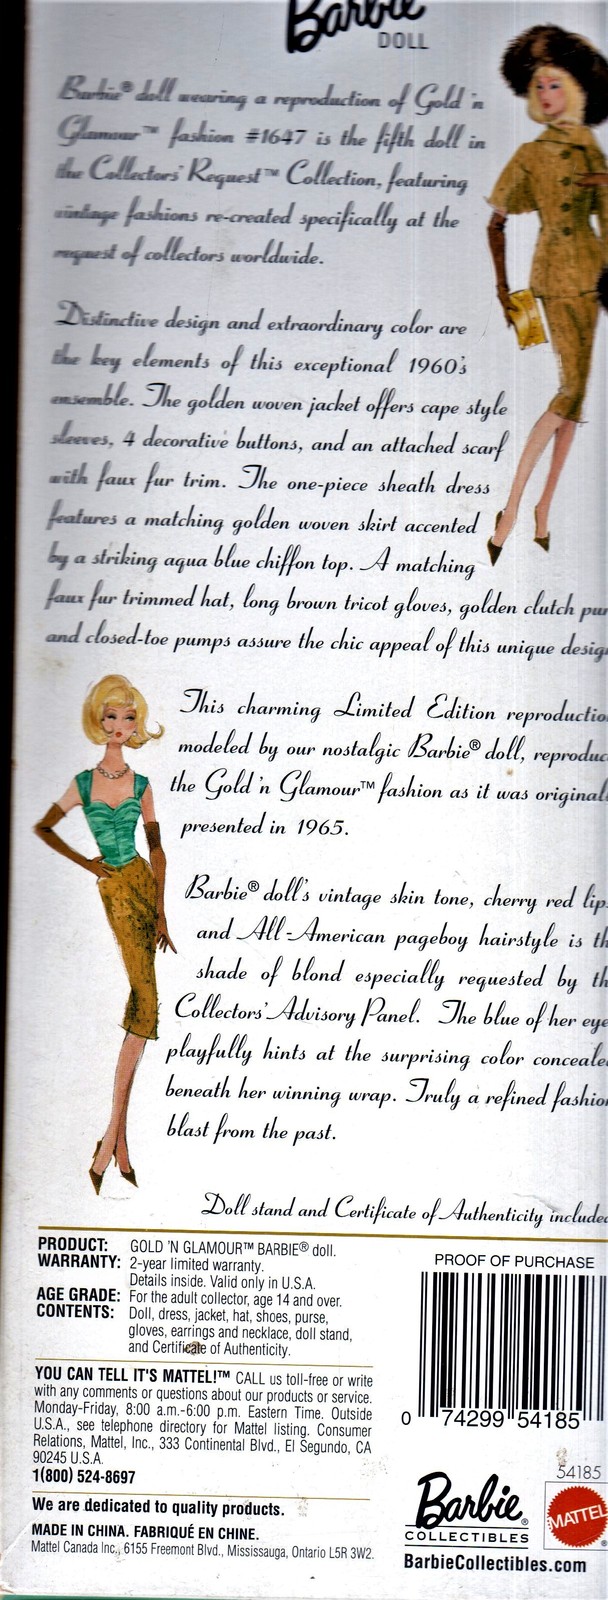 Barbie
DOLL
Barbie® doll wearing a reproduction of Gold 'n
Glamour™ fashion #1647 is the fifth doll in
the Collectors' Request™ Collection, featuring
vintage fashions re-created specifically at the
request of collectors worldwide.
Distinctive design and extraordinary color are
the key elements of this exceptional 1960's
ensemble. The golden woven jacket offers cape style
sleeves, 4 decorative buttons, and an attached scarf
with faux fur trim. The one-piece sheath dress
features a matching golden woven skirt accented
by a striking aqua blue chiffon top. A matching
faux fur trimmed hat, long brown tricot gloves, golden clutch pur
and closed-toe pumps assure the chic appeal of this unique desig
This charming Limited Edition reproductio
modeled by our nostalgic Barbie® doll, reproduc
the Gold 'n Glamour™ fashion as it was original
presented in 1965.
Barbie® doll's vintage skin tone, cherry red lip
and All-American pageboy hairstyle is th
shade of blond especially requested by th
Collectors' Advisory Panel. The blue of her eye
playfully hints at the surprising color conceale
beneath her winning wrap. Truly a refined fashio
blast from the past.
Doll stand and Certificate of Authenticity include
PRODUCT: GOLD 'N GLAMOUR™ BARBIE® doll.
WARRANTY: 2-year limited warranty.
Details inside. Valid only in U.S.A.
AGE GRADE: For the adult collector, age 14 and over.
CONTENTS: Doll, dress, jacket, hat, shoes, purse,
gloves, earrings and necklace, doll stand,
and Certificate of Authenticity.
YOU CAN TELL IT'S MATTEL!™ CALL us toll-free or write
with any comments or questions about our products or service.
Monday-Friday, 8:00 a.m.-6:00 p.m. Eastern Time. Outside
U.S.A., see telephone directory for Mattel listing. Consumer
Relations, Mattel, Inc., 333 Continental Blvd., El Segundo, CA
90245 U.S.A.
1(800) 524-8697
We are dedicated to quality products.
MADE IN CHINA. FABRIQUÉ EN CHINE.
Mattel Canada Inc., 6155 Freemont Blvd., Mississauga, Ontario L5R 3W2.
PROOF OF PURCHASE
0 74299 54185
54185
Barbie®
COLLECTIBLES
MATTEL®
BarbieCollectibles.com